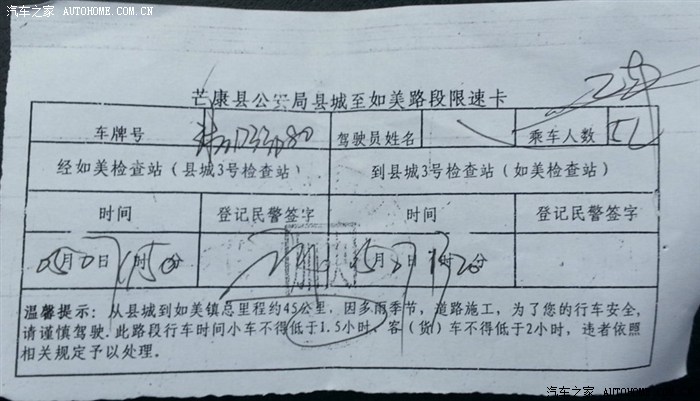 汽车之家 AUTOHOME.COM.CN
芒康县公安局县城至如美路段限速卡
车牌号 驾驶员姓名 乘车人数
经如美检查站（县城3号检查站） 到县城3号检查站（如美检查站）
时间 登记民警签字 时间 登记民警签字
月 日 时 分 月 日 时 分
温馨提示：从县城到如美镇总里程约45公里，因多雨季节，道路施工，为了您的行车安全，
请谨慎驾驶.此路段行车时间小车不得低于1.5小时、客（货）车不得低于2小时，违者依照
相关规定予以处理。
汽车之家 AUTOHOME.COM.CN